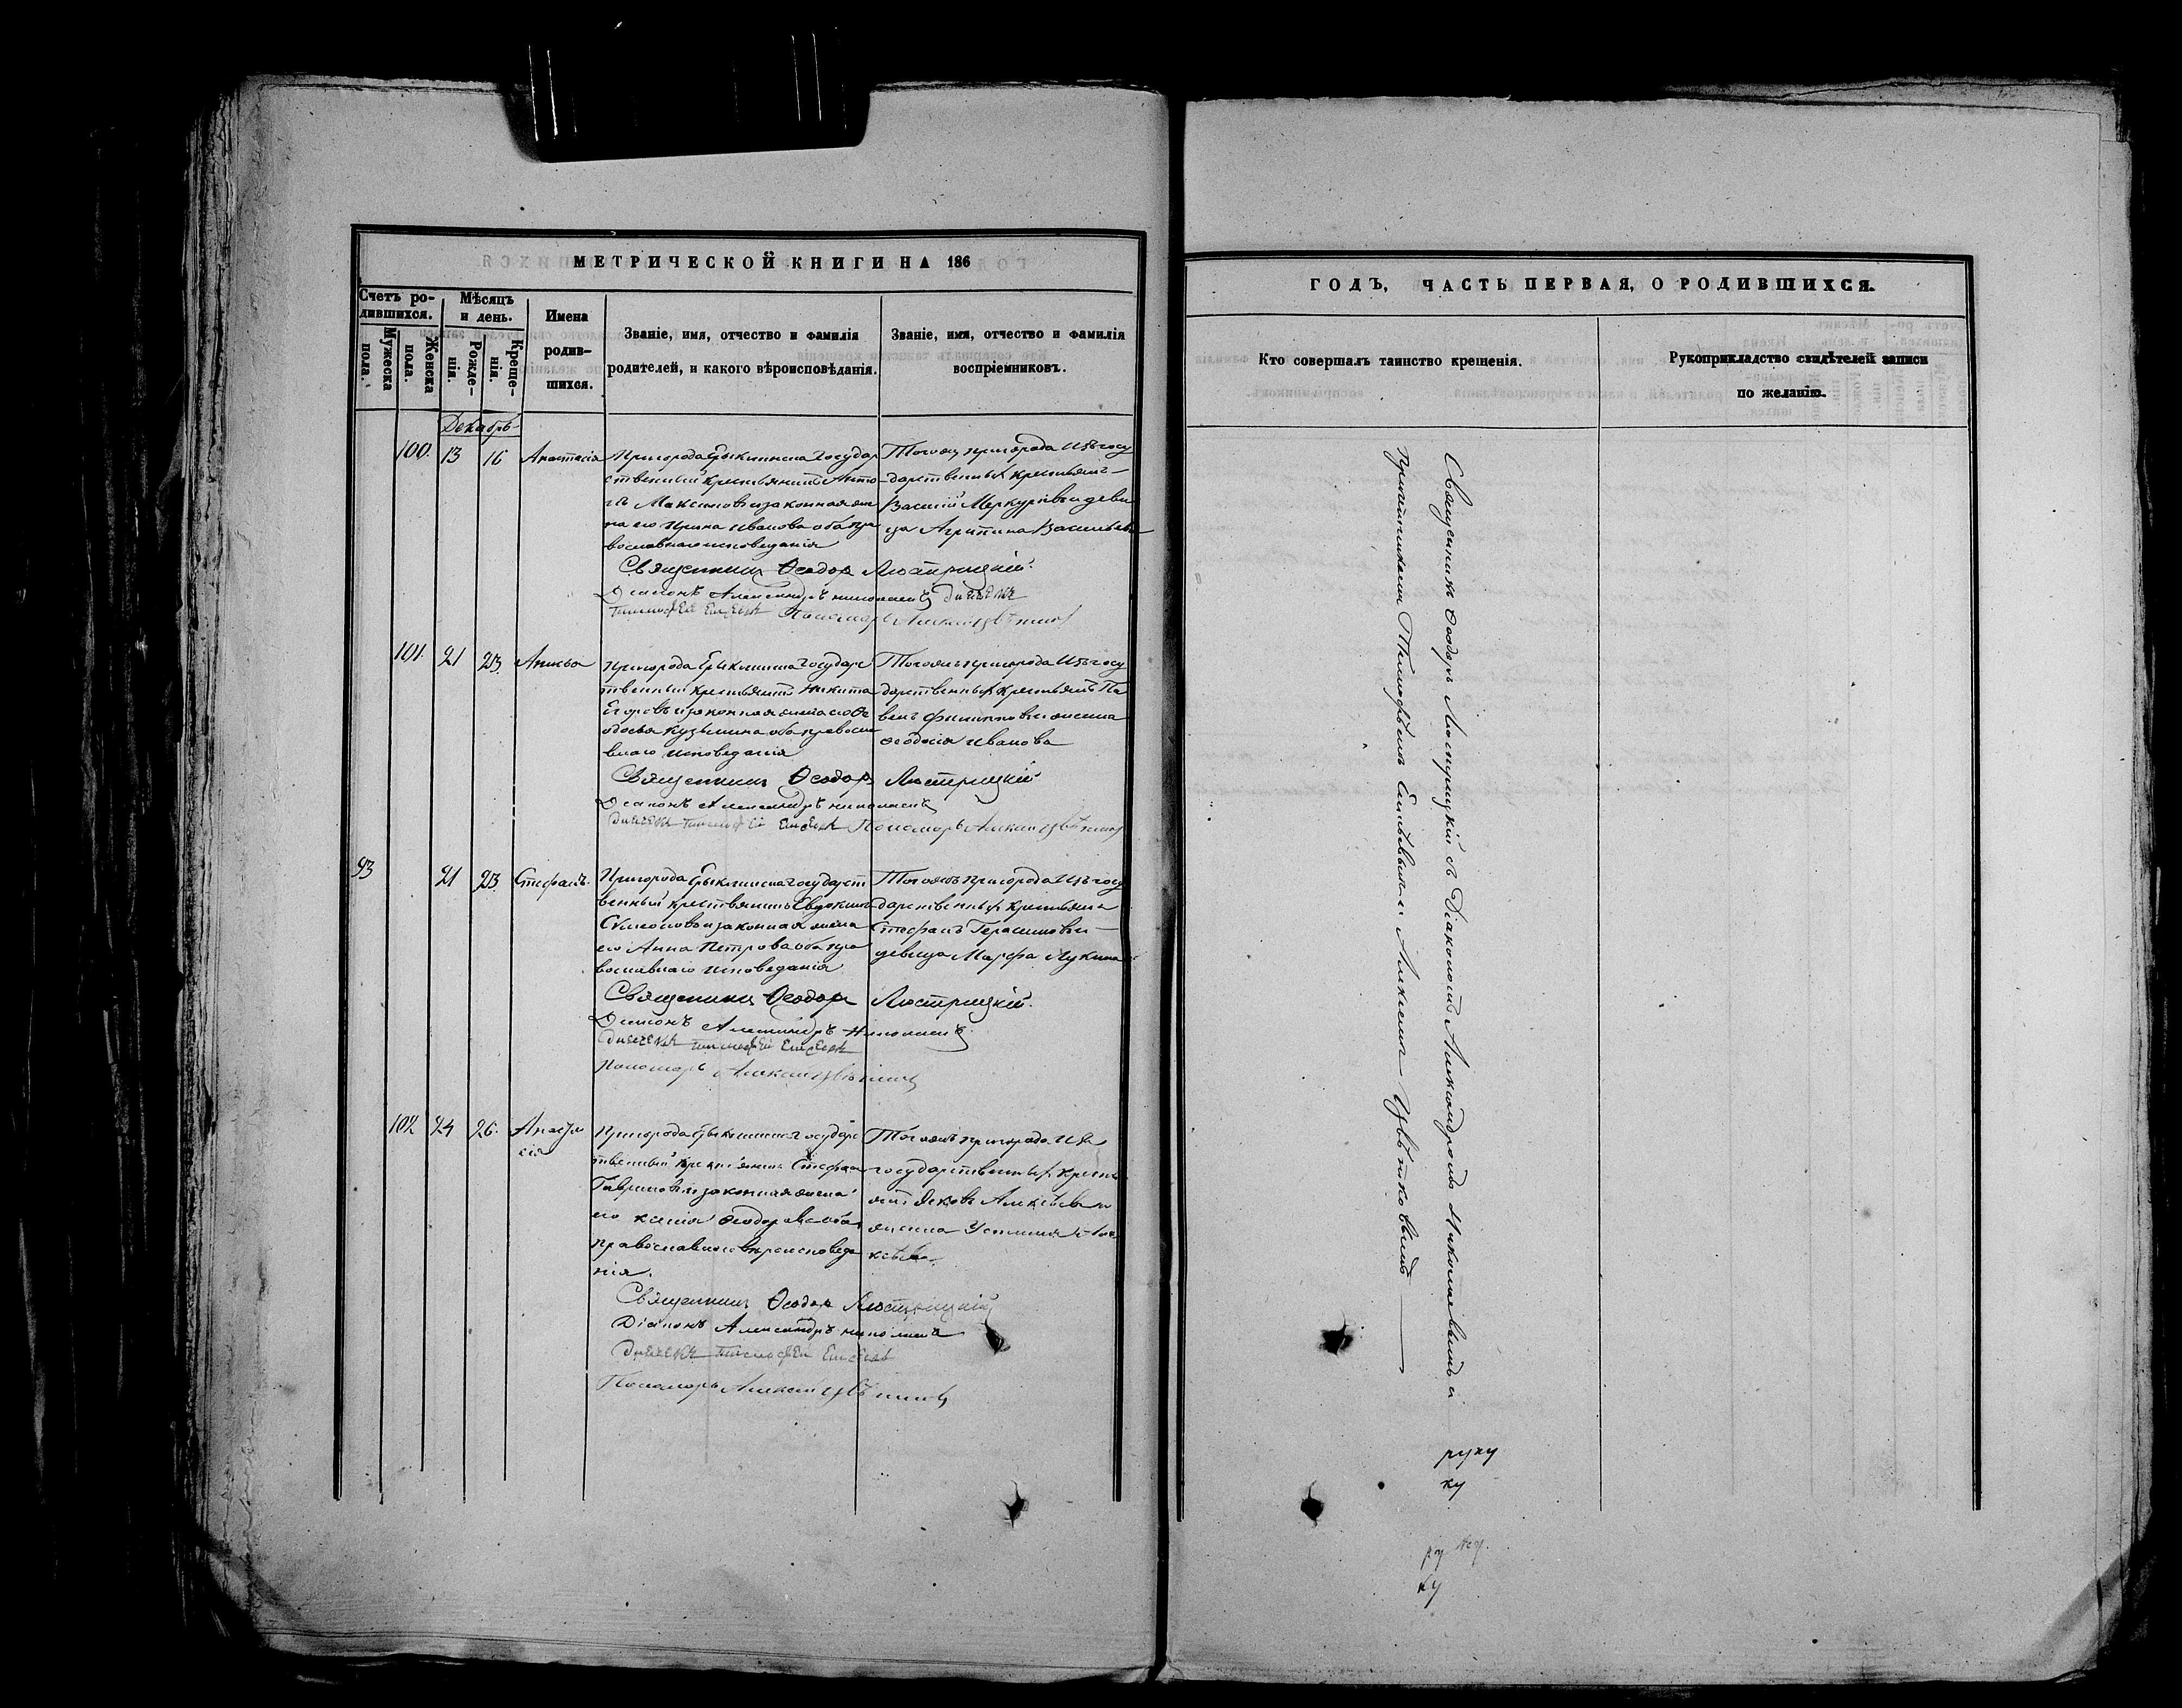 МЕТРИЧЕСКОЙ КНИГИ НА 186
Счетъ ро-
дившихся.
Мужеска
пола.
Женска
пола.
Мѣсяцъ
и день.
Рожде-
нія.
Креще-
нія.
Имена
родив-
шихся.
Званіе, имя, отчество и фамилія
родителей, и какого вѣроисповѣданія.
Званіе, имя, отчество и фамилія
воспріемниковъ.
Декабрь
100. 13 16 Анастасія
Пригорода Ерыклинска Государ
ственный крестьянинъ Анто
нъ Максимовъ и законная же
на его Ирина Иванова оба пра
вославнаго исповеданія
Тогожъ пригорода Изъ госу
дарственныхъ крестьянъ
Василій Меркурьевъ и деви
ца Агрипина Васильева
Священникъ Ѳеодоръ Люстрицкій.
Діаконъ Александръ Николаевъ Дьячекъ
Тимофей Епифевъ Пономарь Алексей Цвѣтковъ
101. 21 23. Анисья
Пригорода Ерыклинска Государс
твенный крестьянинъ Никита
Егоровъ и законная жена его Ѳе
досья Кузьмина оба правосла
внаго исповеданія
Тогожъ пригорода Изъ госу
дарственныхъ крестьянъ Па
велъ Филипповъ и жена
Ѳеодосія Иванова
Священникъ Ѳеодоръ Люстрицкій
Діаконъ Александръ Николаевъ
Дьячекъ Тимофей Пономарь Алексей Цвѣтковъ
93 21 23. Стефанъ.
Пригорода Ерыклинска Государст
венный крестьянинъ Евдокимъ
Симеоновъ и законная жена
его Анна Петрова оба пра
вославнаго исповеданія
Тогожъ пригорода Изъ госу
дарственныхъ крестьянъ
Стефанъ Герасимовъ и
девица Марфа Лукина
Священникъ Ѳеодоръ Люстрицкій.
Діаконъ Александръ Николаевъ
Дьячекъ Тимофей
Пономарь Алексей Цвѣтковъ
102 24 26. Анаста
сія
Пригорода Ерыклинска Государс
твенный крестьянинъ Стефанъ
Гавриловъ и законная жена
его Ксенія Ѳеодорова оба
православнаго вероисповеда
нія.
Тогожъ пригорода Изъ
государственныхъ кресть
янъ Яковъ Алексѣевъ и
жена Устинія
Священникъ Ѳеодоръ Люстрицкій
Діаконъ Александръ Николаевъ
Дьячекъ Тимофей
Пономарь Алексей Цвѣтковъ
ГОДЪ, ЧАСТЬ ПЕРВАЯ, О РОДИВШИХСЯ.
Кто совершалъ таинство крещенія.
Рукоприкладство свидѣтелей записи
по желанію.
Священникъ Ѳеодоръ Люстрицкій съ Діакономъ Александромъ Николаевымъ и
Причетниками Тимофѣемъ Алексеемъ Цвѣтковымъ
руку
ку
ку